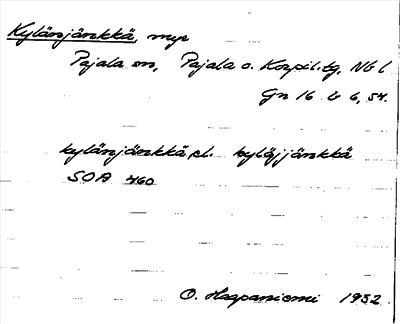 Kylänjänkkä, myr
Pajala sn, Pajala o. Korpil. tg, Nb l
Gn 16 b 6, 54.
kylänjänkkä pl. kyläjjänkkä
SOA 460
O. Haapaniemi 1932